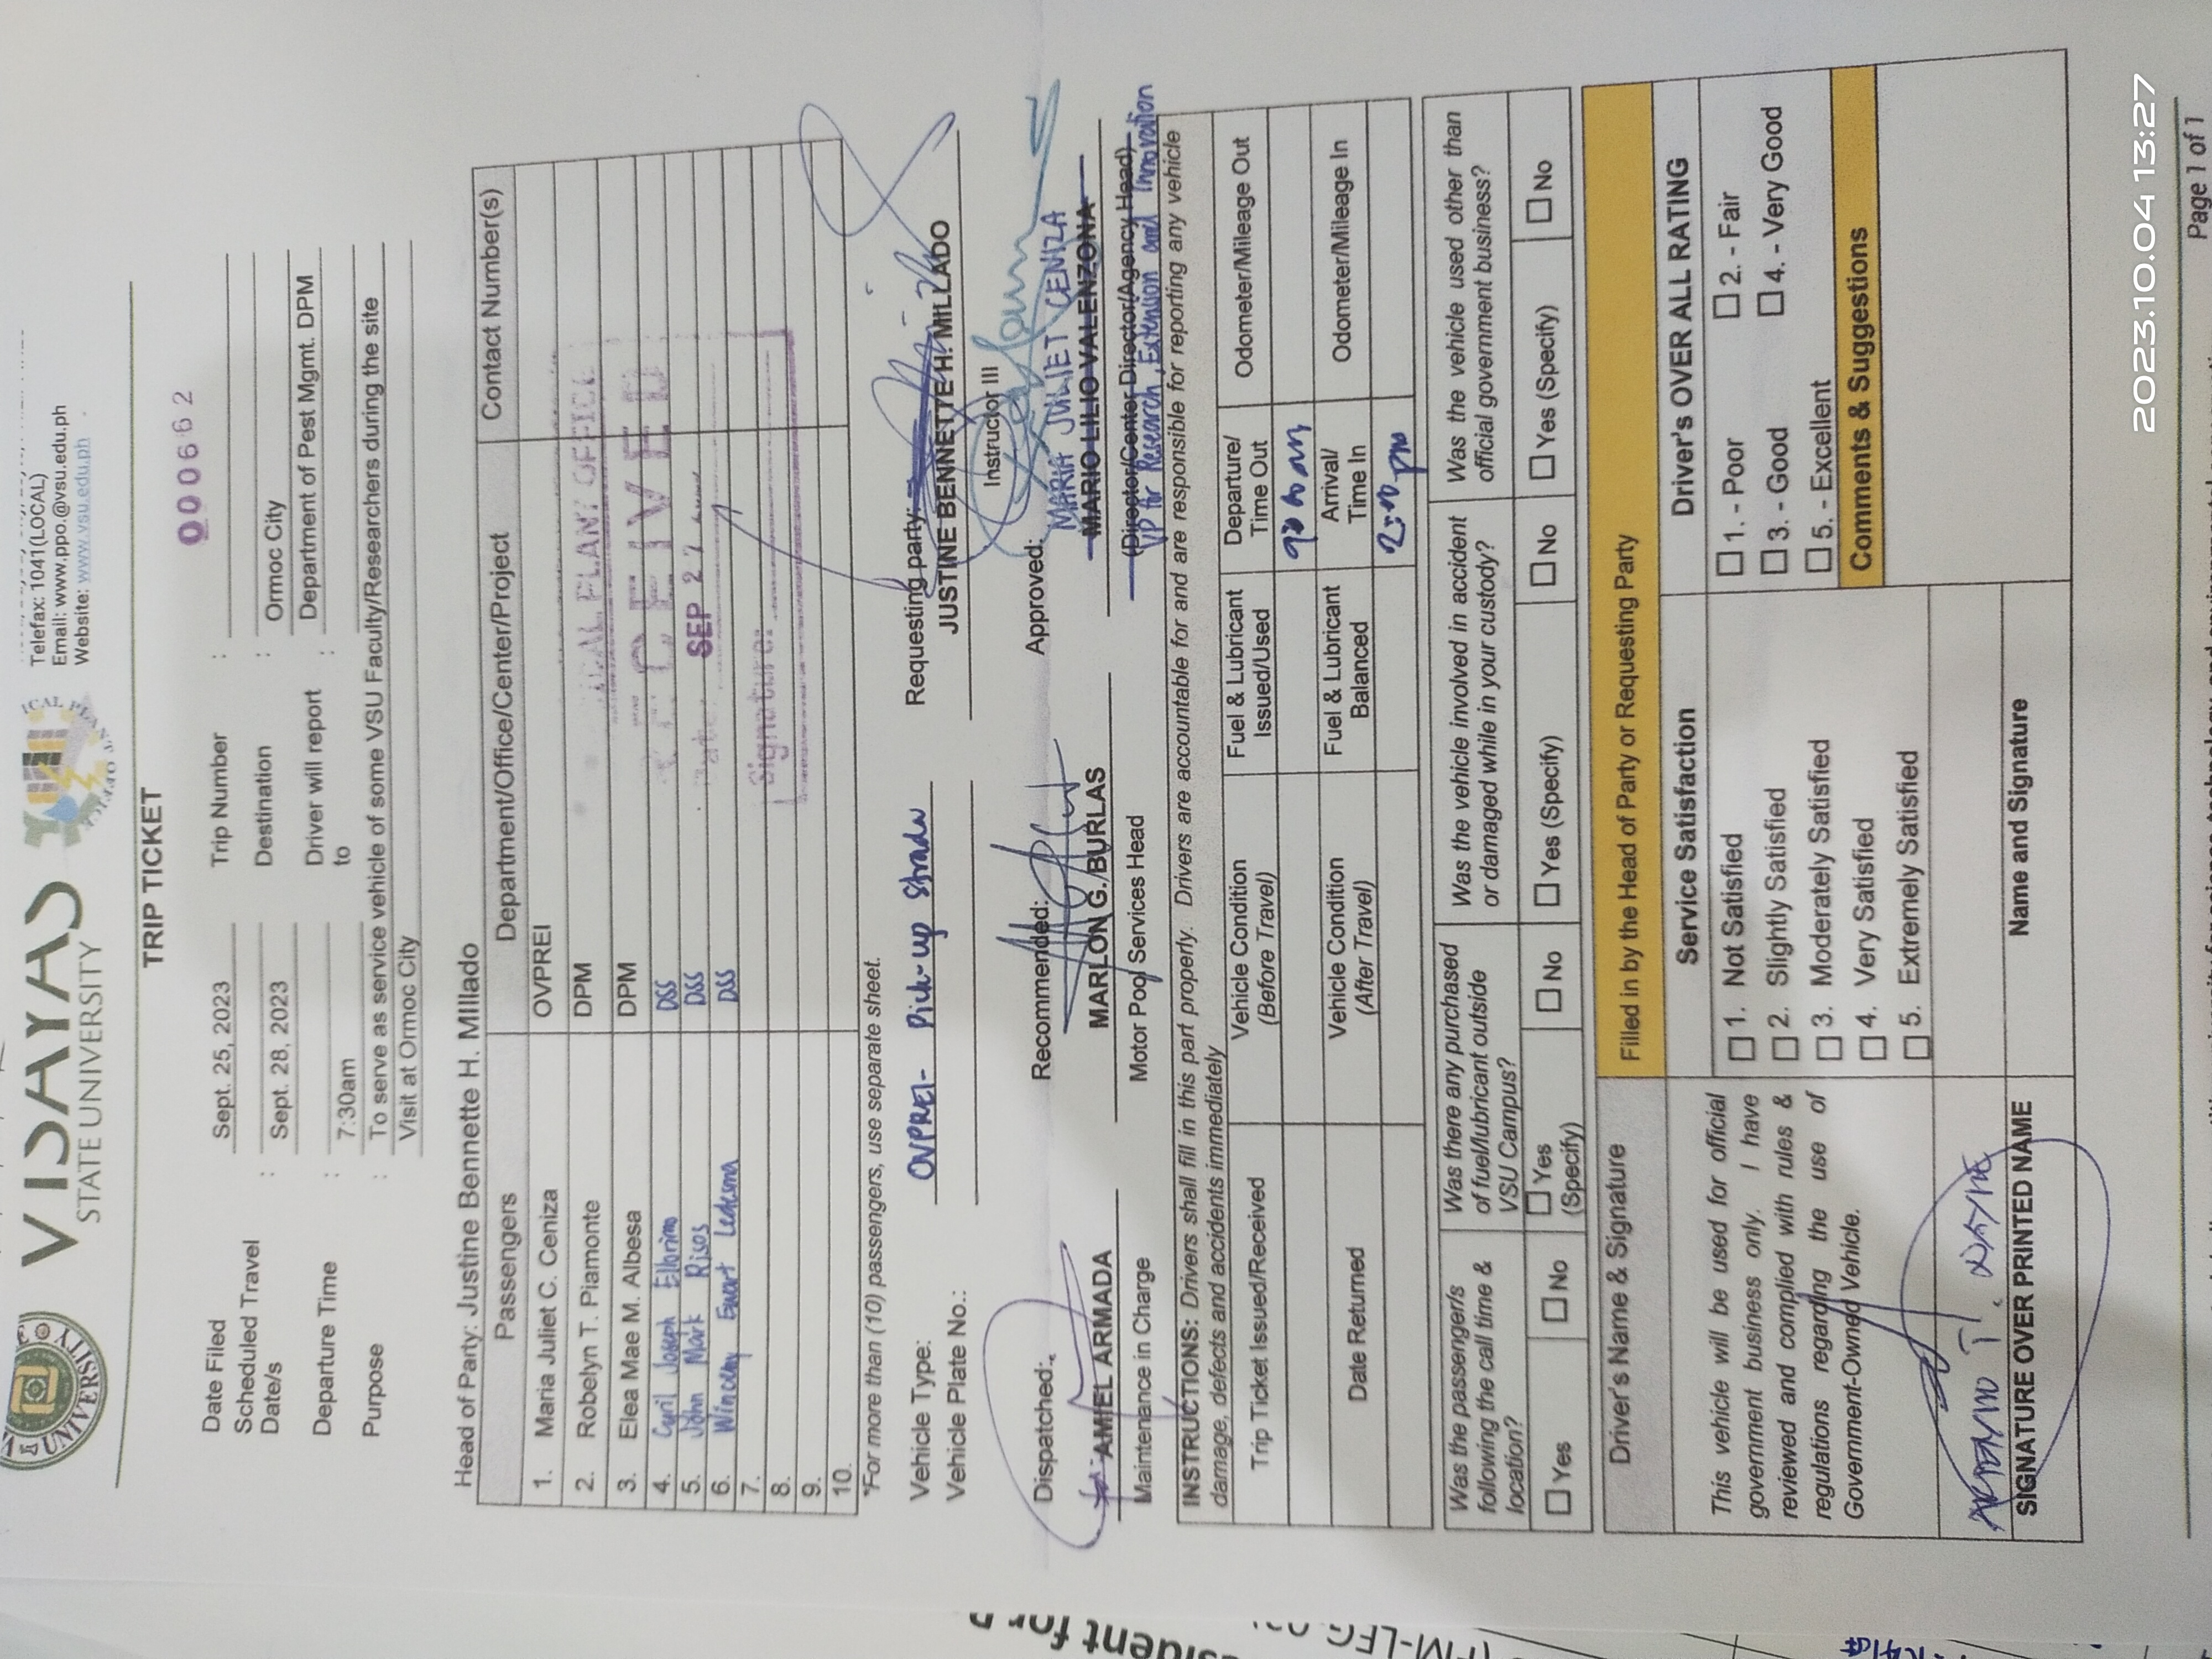 VISAYAS
STATE UNIVERSITY
Telefax: 1041(LOCAL)
Email: www.ppo.@vsu.edu.ph
Website: www.vsu.edu.ph
TRIP TICKET
000662
Date Filed Sept. 25, 2023 Trip Number :
Scheduled Travel Date/s : Sept. 28, 2023 Destination : Ormoc City
Departure Time : 7:30am Driver will report to : Department of Pest Mgmt. DPM
Purpose : To serve as service vehicle of some VSU Faculty/Researchers during the site
Visit at Ormoc City
Head of Party: Justine Bennette H. Millado
Passengers Department/Office/Center/Project Contact Number(s)
1. Maria Juliet C. Ceniza OVPREI
2. Robelyn T. Piamonte DPM
3. Elea Mae M. Albesa DPM
4. Cyril Joseph Elhorimo DSS
5. John Mark Risos DSS
6. Wincemy Ewart Ledesma DSS
7.
8.
9.
10.
PLANT OFFICE
SEP 27
Signature:
*For more than (10) passengers, use separate sheet.
Vehicle Type: OVPREI- Pick-up Strada
Vehicle Plate No.:
Requesting party:
JUSTINE BENNETTE H. MILLADO
Instructor III
Dispatched: Recommended: Approved:
MARIA JULIET CENIZA
AMIEL ARMADA MARLON G. BURLAS MARIO LILIO VALENZONA
Maintenance in Charge Motor Pool Services Head (Director/Center Director/Agency Head)
VP for Research, Extension and Innovation
INSTRUCTIONS: Drivers shall fill in this part properly. Drivers are accountable for and are responsible for reporting any vehicle
damage, defects and accidents immediately
Trip Ticket Issued/Received Vehicle Condition (Before Travel) Fuel & Lubricant Issued/Used Departure/ Time Out Odometer/Mileage Out
Date Returned Vehicle Condition (After Travel) Fuel & Lubricant Balanced Arrival/ Time In Odometer/Mileage In
2:00 pm
Was the passenger/s following the call time & location? Was there any purchased of fuel/lubricant outside VSU Campus? Was the vehicle involved in accident or damaged while in your custody? Was the vehicle used other than official government business?
Yes No Yes (Specify) No Yes (Specify) No Yes (Specify) No
Driver's Name & Signature Filled in by the Head of Party or Requesting Party
Service Satisfaction Driver's OVER ALL RATING
This vehicle will be used for official
government business only. I have
reviewed and complied with rules &
regulations regarding the use of
Government-Owned Vehicle.
1. Not Satisfied
2. Slightly Satisfied
3. Moderately Satisfied
4. Very Satisfied
5. Extremely Satisfied
1. - Poor 2. - Fair
3. - Good 4. - Very Good
5. - Excellent
Comments & Suggestions
SIGNATURE OVER PRINTED NAME Name and Signature
Page 1 of 1
2023.10.04 13:27